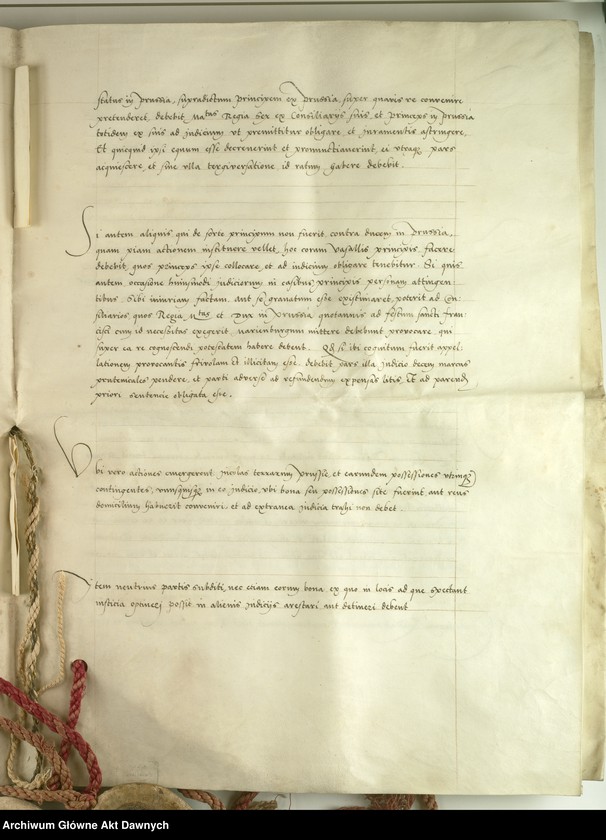 status in Prussia, supradictum principem ex Prussia, super quavis re convenire
pretenderet, debebit Mtas Regia Sex ex Consiliarys suis, et princeps in Prussia
totidem ex suis ad iudicium ut premittitur obligare, et iuramentis astringere,
Et quicquid ipsi equum esse decreverint et pronunctiaverint, ei utraque pars
acquiescere, et sine ulla tergiversatione id ratum habere debebit.
Si autem aliquis qui de sorte principum non fuerit contra ducem in Prussia,
quam piam actionem instituere vellet, hoc coram Vasallis principis facere
debebit, quos princeps ipse collocare, et ad iudicium obligare tenebitur. Si quis
autem, occasione huiusmodi iudiciorum in casibus principis personam attingen
tibus, sibi iniuriam factam, aut se gravatum esse existimaret, poterit ad Con
siliarios, quos Regia Mtas et Dux in Prussia quotannis ad festum sancti fran
cisci cum id necessitas exegerit, marienburgum mittere debebunt provocare, qui
super ea re cognoscendi potestatem habere debent. Qd si ibi cognitum fuerit appel
lationem provocantis frivolam et illicitam esse, debebit pars illa iudicio decem marcas
prutenicales pendere, et parti adverse ad refundendum expensas litis, Et ad parendum
priori sentencie obligata esse.
Ubi vero actiones emergerent, incolas terrarum Prussie, et earundem possessiones utrinque
contingentes, unusquisque in eo iudicio, ubi bona seu possessiones site fuerint, aut reus
domicilium habuerit conveniri, et ad extranea iudicia trahi non debet.
Item neutrius partis subditi, nec etiam eorum bona ex quo in locis ad que spectant
iusticia optineri possit in alienis iudicijs arestari aut detineri debent
Archiwum Główne Akt Dawnych